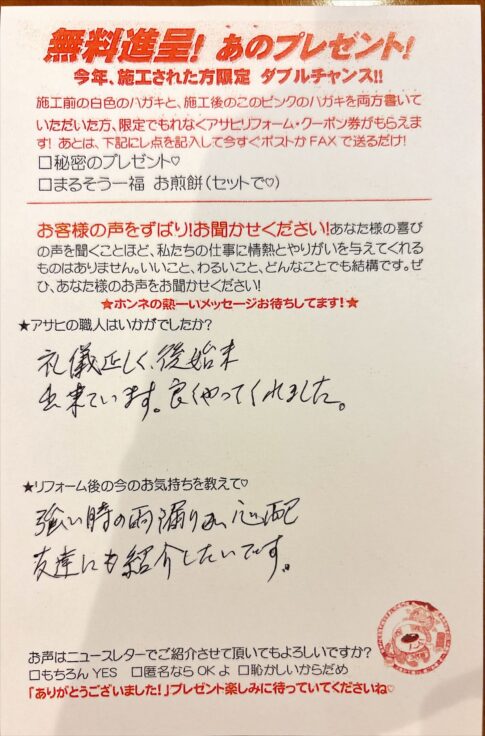 無料進呈! あのプレゼント!
今年、施工された方限定 ダブルチャンス!!
施工前の白色のハガキと、施工後のこのピンクのハガキを両方書いて
いただいた方、限定でもれなくアサヒリフォーム・クーポン券がもらえま
す! あとは、下記にレ点を記入して今すぐポストかFAXで送るだけ!
□秘密のプレゼント♡
□まるそう一福 お煎餅(セットで♡)
お客様の声をずばり!お聞かせください!あなた様の喜び
の声を聞くことほど、私たちの仕事に情熱とやりがいを与えてくれる
ものはありません。いいこと、わるいこと、どんなことでも結構です。ぜ
ひ、あなた様のお声をお聞かせください!
★ホンネの熱ーいメッセージお待ちしてます!★
★アサヒの職人はいかがでしたか?
礼儀正しく、後始末
出来ています。良くやってくれました。
★リフォーム後の今のお気持ちを教えて♡
強い時の雨漏りの心配
友達にも紹介したいです。
お声はニュースレターでご紹介させて頂いてもよろしいですか?
□もちろんYES □匿名ならOKよ □恥かしいからだめ
「ありがとうございました!」プレゼント楽しみに待っていてくださいね♡